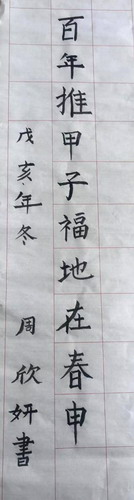 百年推甲子福地在春申
戊亥年冬
周欣妍書